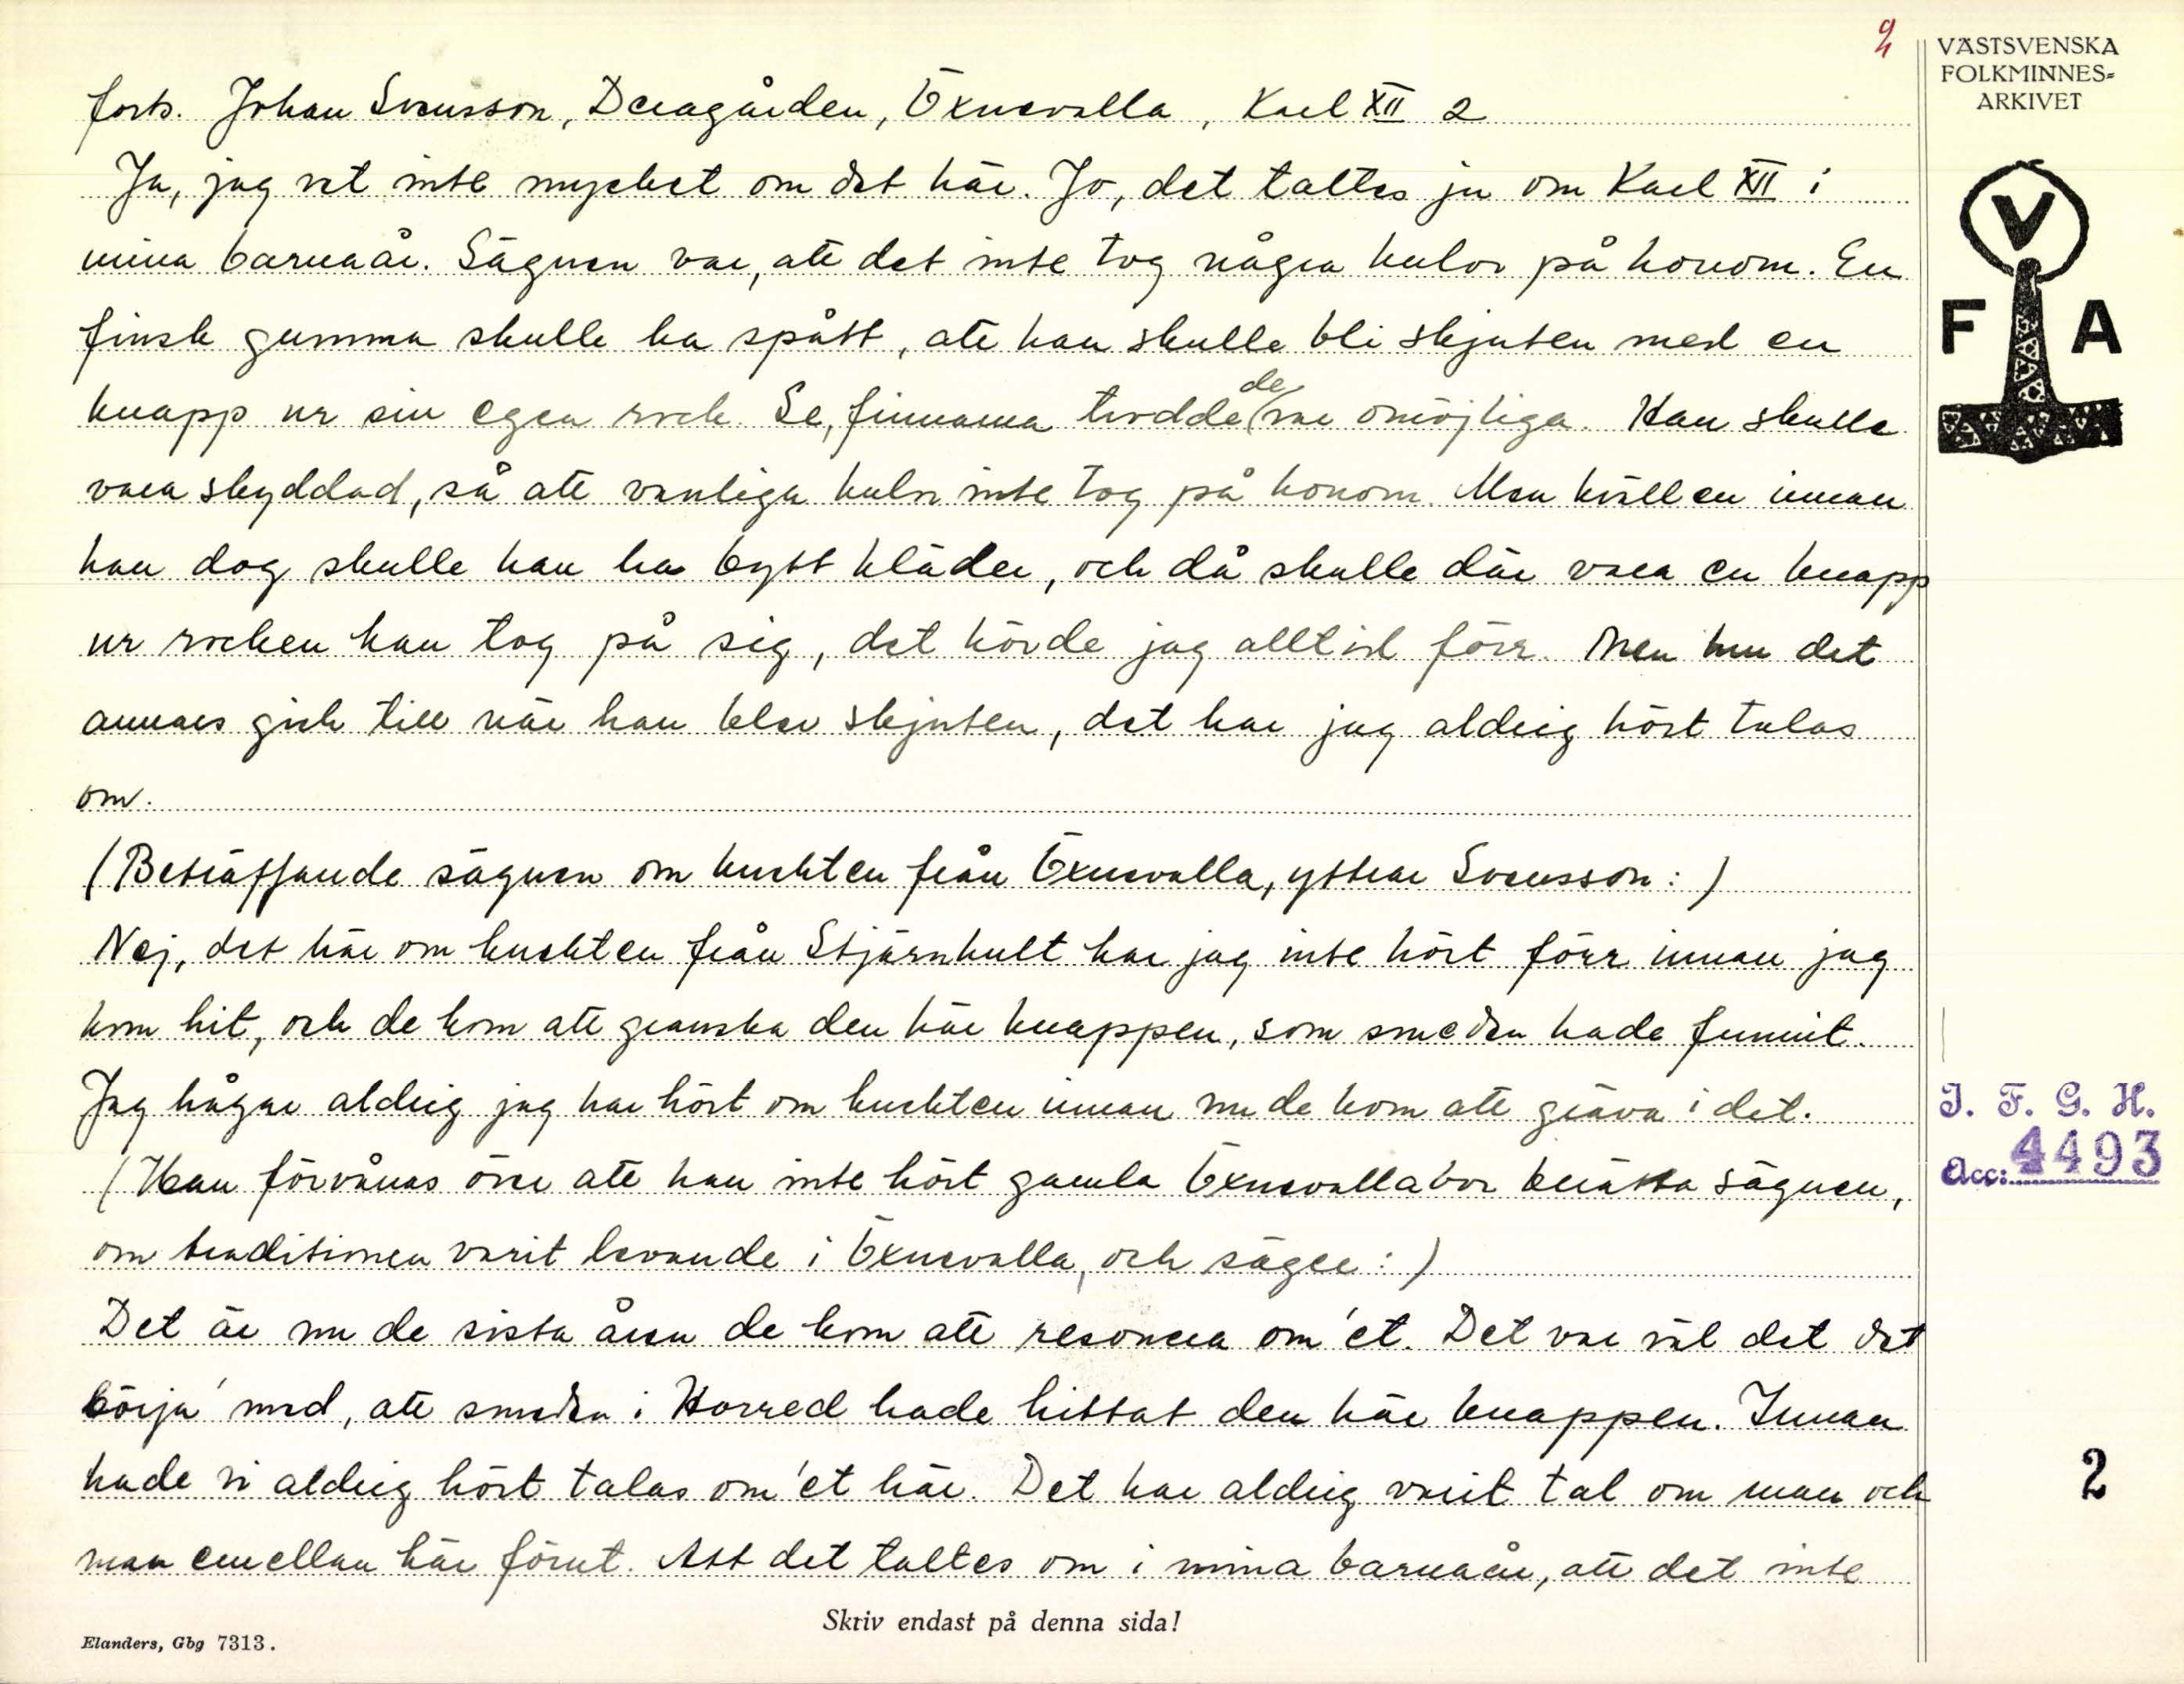 2
VÄSTSVENSKA
FOLKMINNES=
ARKIVET
forts. Johan Svensson, Deragården, Öxnevalla, Karl XII 2
Ja, jag vet inte mycket om det här. Jo, det taltes ju om Karl XII i
mina barnaår. Sägnen var, att det inte tog några kulor på honom. En
finsk gumma skulle ha spått, att han skulle bli skjuten med en
knapp ur sin egen rock. Se, finnarna trodde de var omöjliga. Han skulle
vara skyddad, så att vanliga kulor inte tog på honom. Men kvällen innan
han dog skulle han ha bytt kläder, och då skulle där vara en knapp
ur rocken han tog på sig, det hörde jag alltid förr. Men hur det
annars gick till när han blev skjuten, det har jag aldrig hört talas
om.
(Beträffande sägnen om knekten från Öxnevalla, yttrar Svensson:)
Nej, det här om knekten från Stjärnhult har jag inte hört förr innan jag
kom hit, och de kom att granska den här knappen, som smeden hade funnit.
Jag hågar aldrig jag har hört om knekten innan nu de kom att gräva i det.
(Han förvånas över att han inte hört gamla Öxnevallabor berätta sägnen,
om traditionen varit levande i Öxnevalla, och säger:)
Det är nu de sista åren de kom att resonera om'et. Det var väl det det
börja' med, att smeden i Horred hade hittat den här knappen. Innan
hade vi aldrig hört talas om'et här. Det har aldrig varit tal om man och
man emellan här förut. Att det taltes om i mina barnaår, att det inte
V
F A
I. F. G. H.
Acc: 4493
2
Skriv endast på denna sida!
Elanders, Gbg 7313.